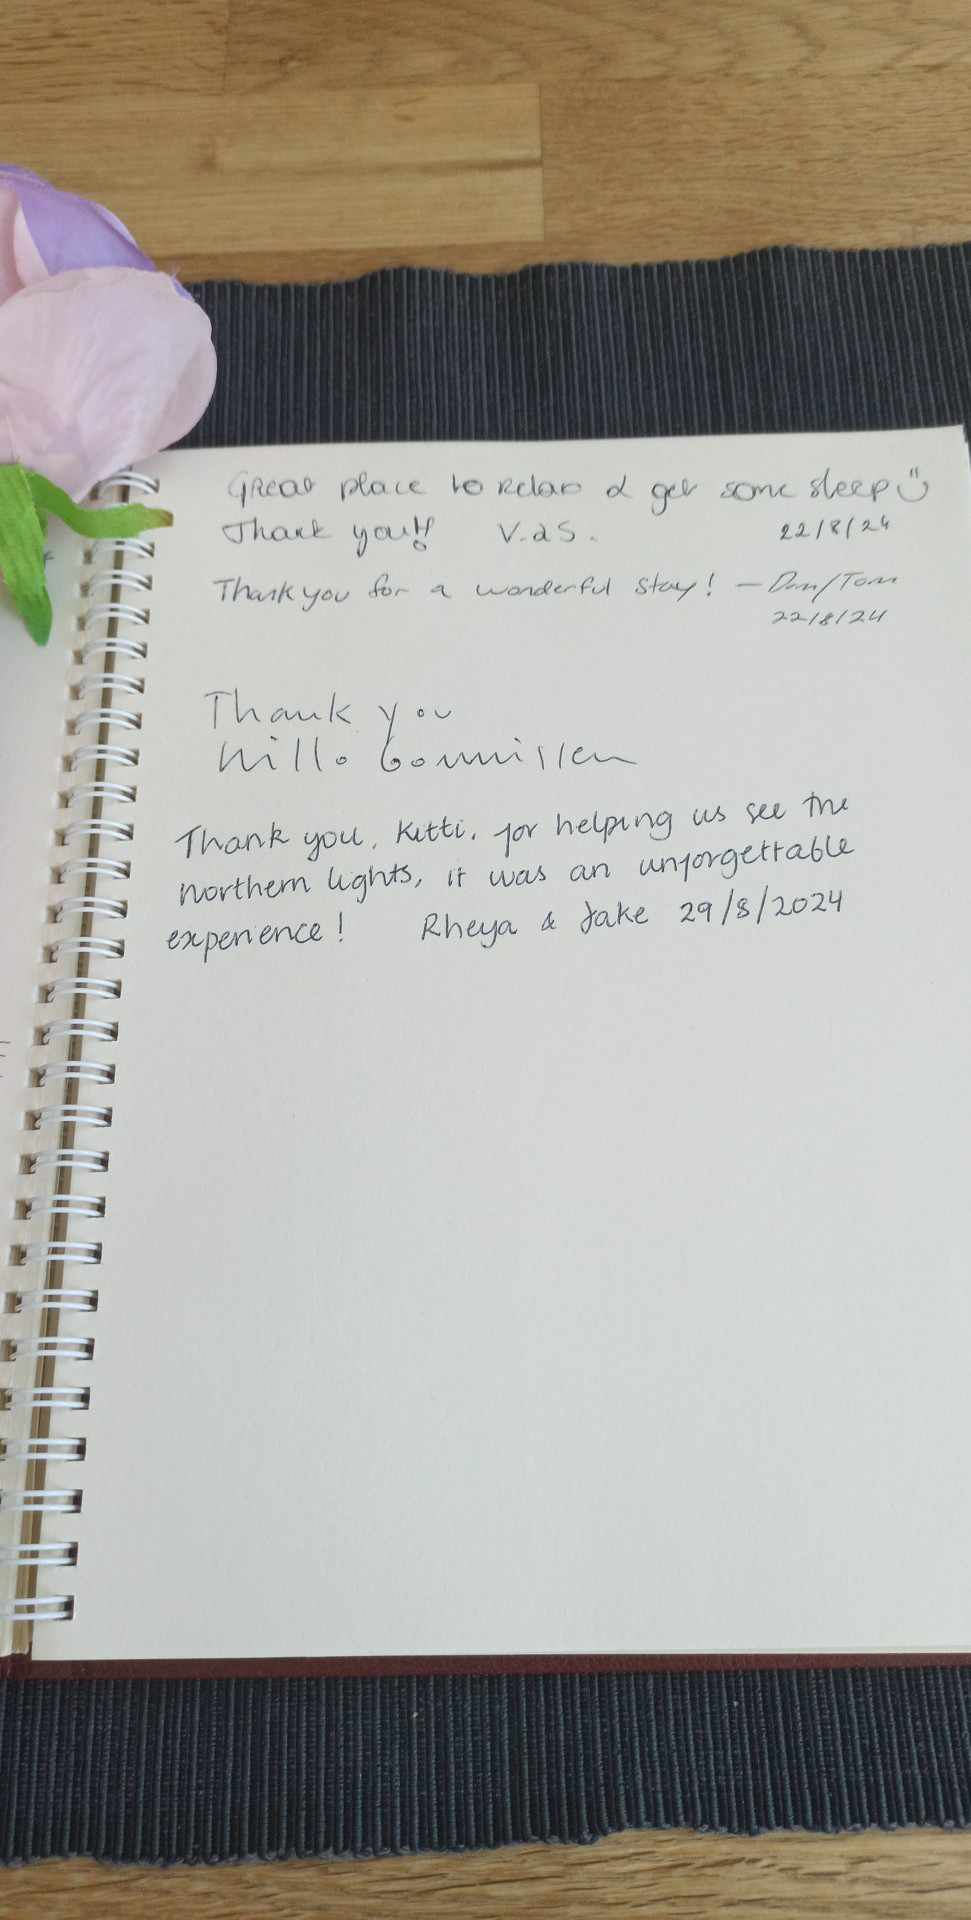 Great place to relax & get some sleep
Thank you!! V.dS. 22/8/24
Thank you for a wonderful stay! – /Tom
22/8/24
Thank you
Thank you, Kitti, for helping us see the
northern lights, it was an unforgettable
experience! Rheya & Jake 29/8/2024